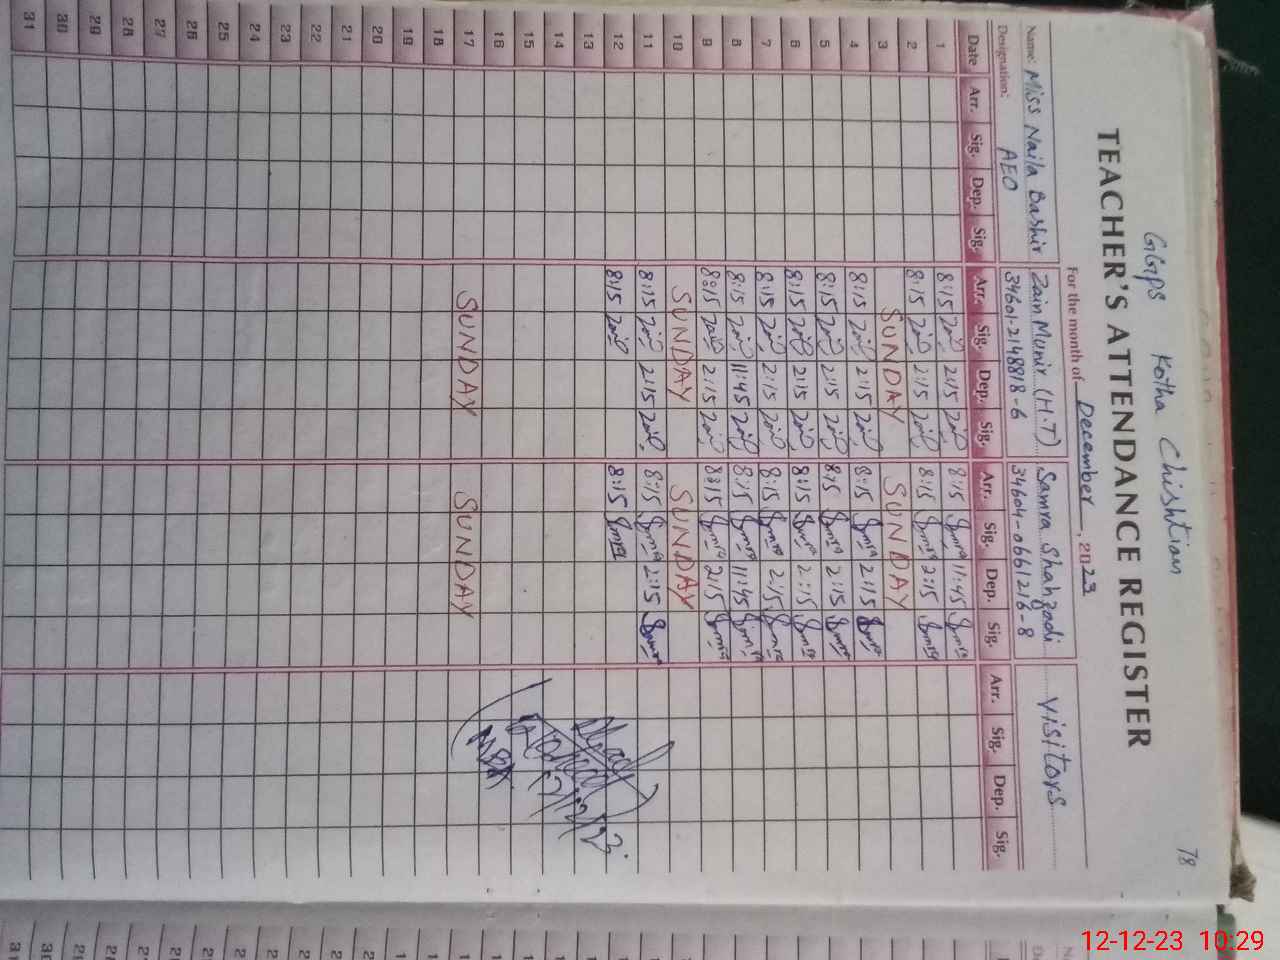 78
GGPS Kotha Chishtian
TEACHER'S ATTENDANCE REGISTER
For the month of December, 2023
Name: Miss Naila Bashir Zain Munir (H.T) Samra Shahzadi Visitors
Designation: AEO 34601-2148818-6 34604-0661216-8
Date Arr. Sig. Dep. Sig. Arr. Sig. Dep. Sig. Arr. Sig. Dep. Sig. Arr. Sig. Dep. Sig.
1 8:15 2:15 8:15 11:45
2 8:15 2:15 8:15 2:15
3 SUNDAY SUNDAY
4 8:15 2:15 8:15 2:15
5 8:15 2:15 8:15 2:15
6 8:15 2:15 8:15 2:15
7 8:15 2:15 8:15 2:15
8 8:15 11:45 8:15 11:45
9 8:15 2:15 8:15 2:15
10 SUNDAY SUNDAY
11 8:15 2:15 8:15 2:15
12 8:15 8:15
13
14 12/12/23
15
16
17 SUNDAY SUNDAY
18
19
20
21
22
23
24
25
26
27
28
29
30
31
12-12-23 10:29